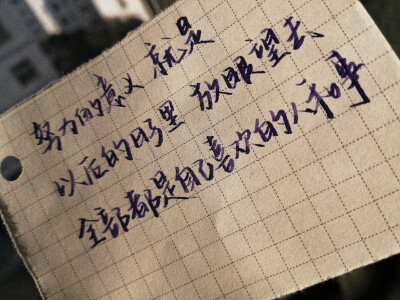 努力的意义 就是
以后的日子里 放眼望去
全部都是自己喜欢的人和事